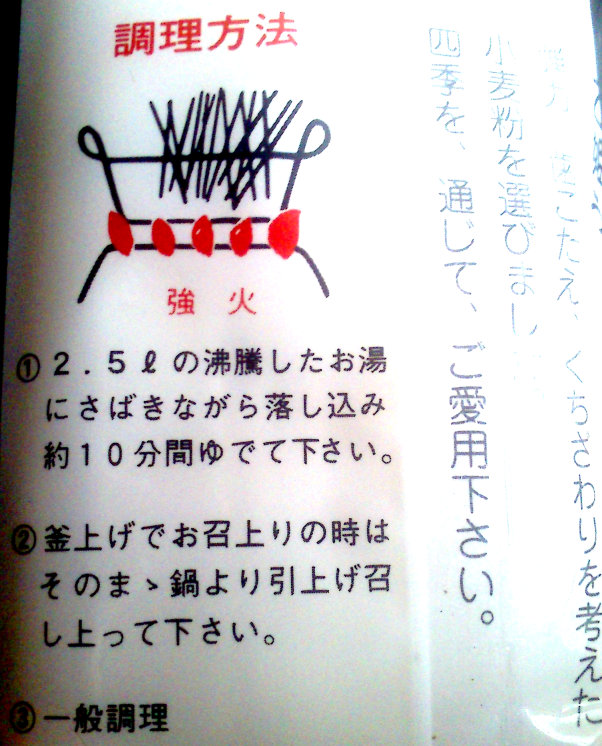 調理方法
強火
①2.5ℓの沸騰したお湯
にさばきながら落し込み
約10分間ゆでて下さい。
②釜上げでお召上りの時は
そのまゝ鍋より引上げ召
し上って下さい。
③一般調理
こたえ、くちざわりを考えた
小麦粉を選びまし
四季を、通じて、ご愛用下さい。